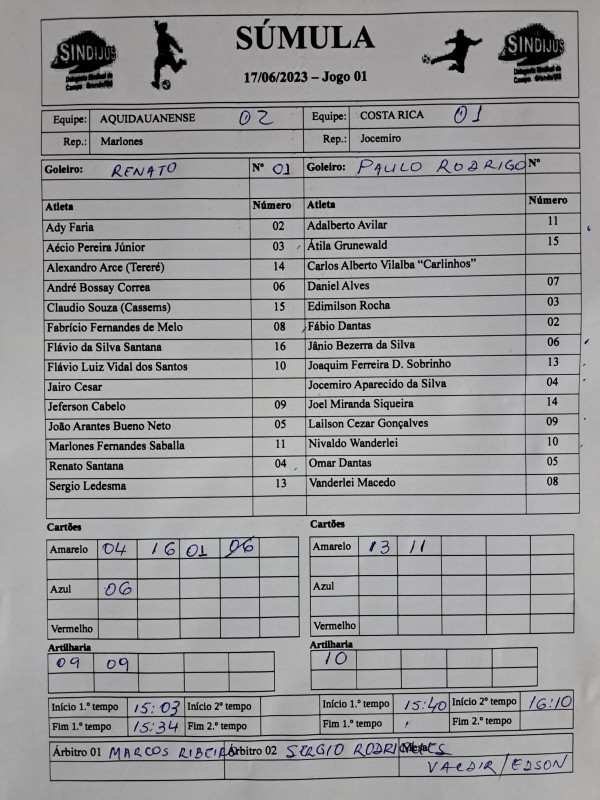 SINDIJUS
Delegacia Sindical de
Campo Grande/MS
SÚMULA
17/06/2023 – Jogo 01
SINDIJUS
Delegacia Sindical de
Campo Grande/MS
Equipe: AQUIDAUANENSE 02 Equipe: COSTA RICA 01
Rep.: Marlones Rep.: Jocemiro
Goleiro: RENATO Nº 01 Goleiro: PAULO RODRIGO Nº
Atleta Número Atleta Número
Ady Faria 02 Adalberto Avilar 11
Aécio Pereira Júnior 03 Átila Grunewald 15
Alexandro Arce (Tereré) 14 Carlos Alberto Vilalba “Carlinhos”
André Bossay Correa 06 Daniel Alves 07
Claudio Souza (Cassems) 15 Edimilson Rocha 03
Fabrício Fernandes de Melo 08 Fábio Dantas 02
Flávio da Silva Santana 16 Jânio Bezerra da Silva 06
Flávio Luiz Vidal dos Santos 10 Joaquim Ferreira D. Sobrinho 13
Jairo Cesar Jocemiro Aparecido da Silva 04
Jeferson Cabelo 09 Joel Miranda Siqueira 14
João Arantes Bueno Neto 05 Lailson Cezar Gonçalves 09
Marlones Fernandes Saballa 11 Nivaldo Wanderlei 10
Renato Santana 04 Omar Dantas 05
Sergio Ledesma 13 Vanderlei Macedo 08
Cartões Cartões
Amarelo 04 16 01 06 Amarelo 13 11
Azul 06 Azul
Vermelho Vermelho
Artilharia Artilharia
09 09 10
Início 1.º tempo 15:03 Início 2º tempo Início 1.º tempo 15:40 Início 2º tempo 16:10
Fim 1.º tempo 15:34 Fim 2.º tempo Fim 1.º tempo Fim 2.º tempo
Árbitro 01 MARCOS RIBEIRO Árbitro 02 SERGIO RODRIGUES Mesa:
VALDIR/EDSON